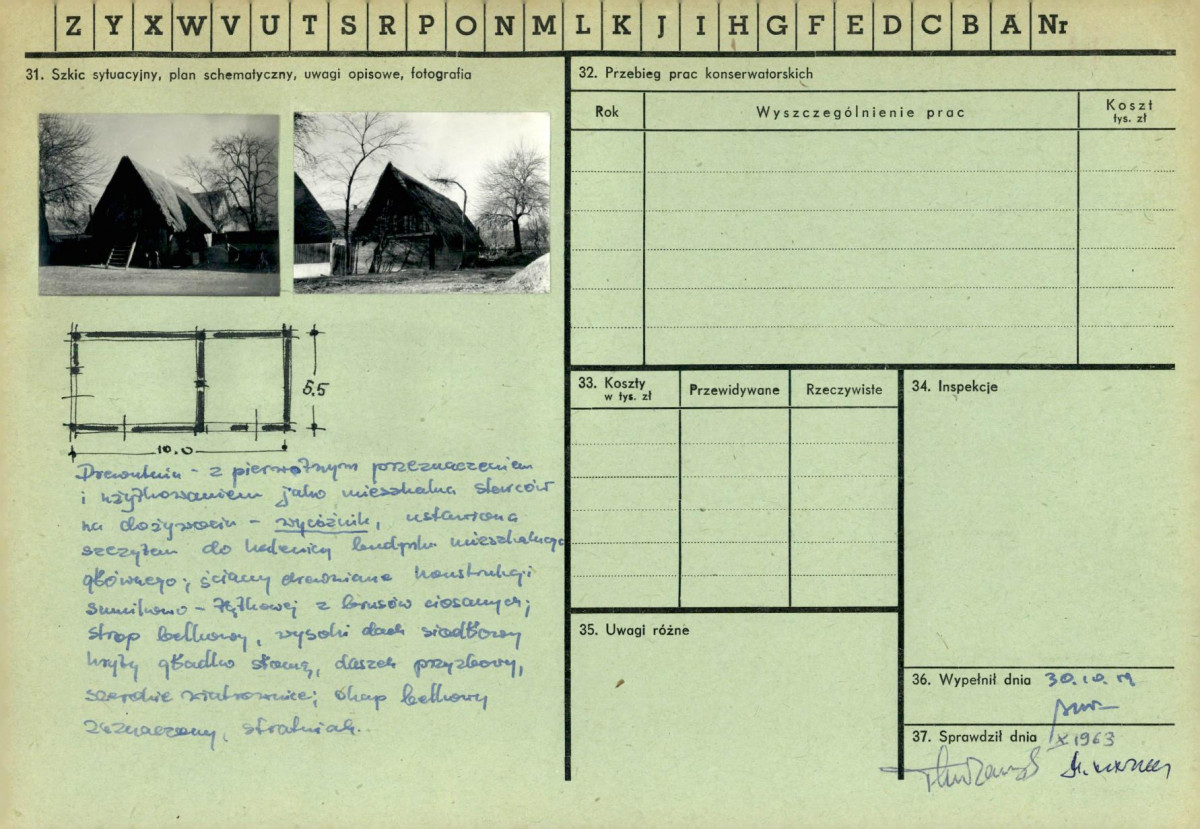 Z Y X W V U T S R P O N M L K J I H G F E D C B A Nr
31. Szkic sytuacyjny, plan schematyczny, uwagi opisowe, fotografia
5.5
10.0
Drewutnia - z pierwotnym przeznaczeniem
i użytkowaniem jako mieszkalna starców
na dożywociu - wycużnik, ustawiona
szczytem do kalenicy budynku mieszkalnego
głównego; ściany drewniane konstrukcji
sumikowo - łątkowej z brusów ciosanych;
strop belkowy, wysoki dach siodłowy
kryty gładko słomą, daszek przyzbowy,
szerokie wiatrownice; okap belkowy
zaznaczony,
32. Przebieg prac konserwatorskich
Rok
Wyszczególnienie prac
Koszt
tys. zł
33. Koszty
w tys. zł
Przewidywane
Rzeczywiste
34. Inspekcje
35. Uwagi różne
36. Wypełnił dnia 30.10.
37. Sprawdził dnia X 1963